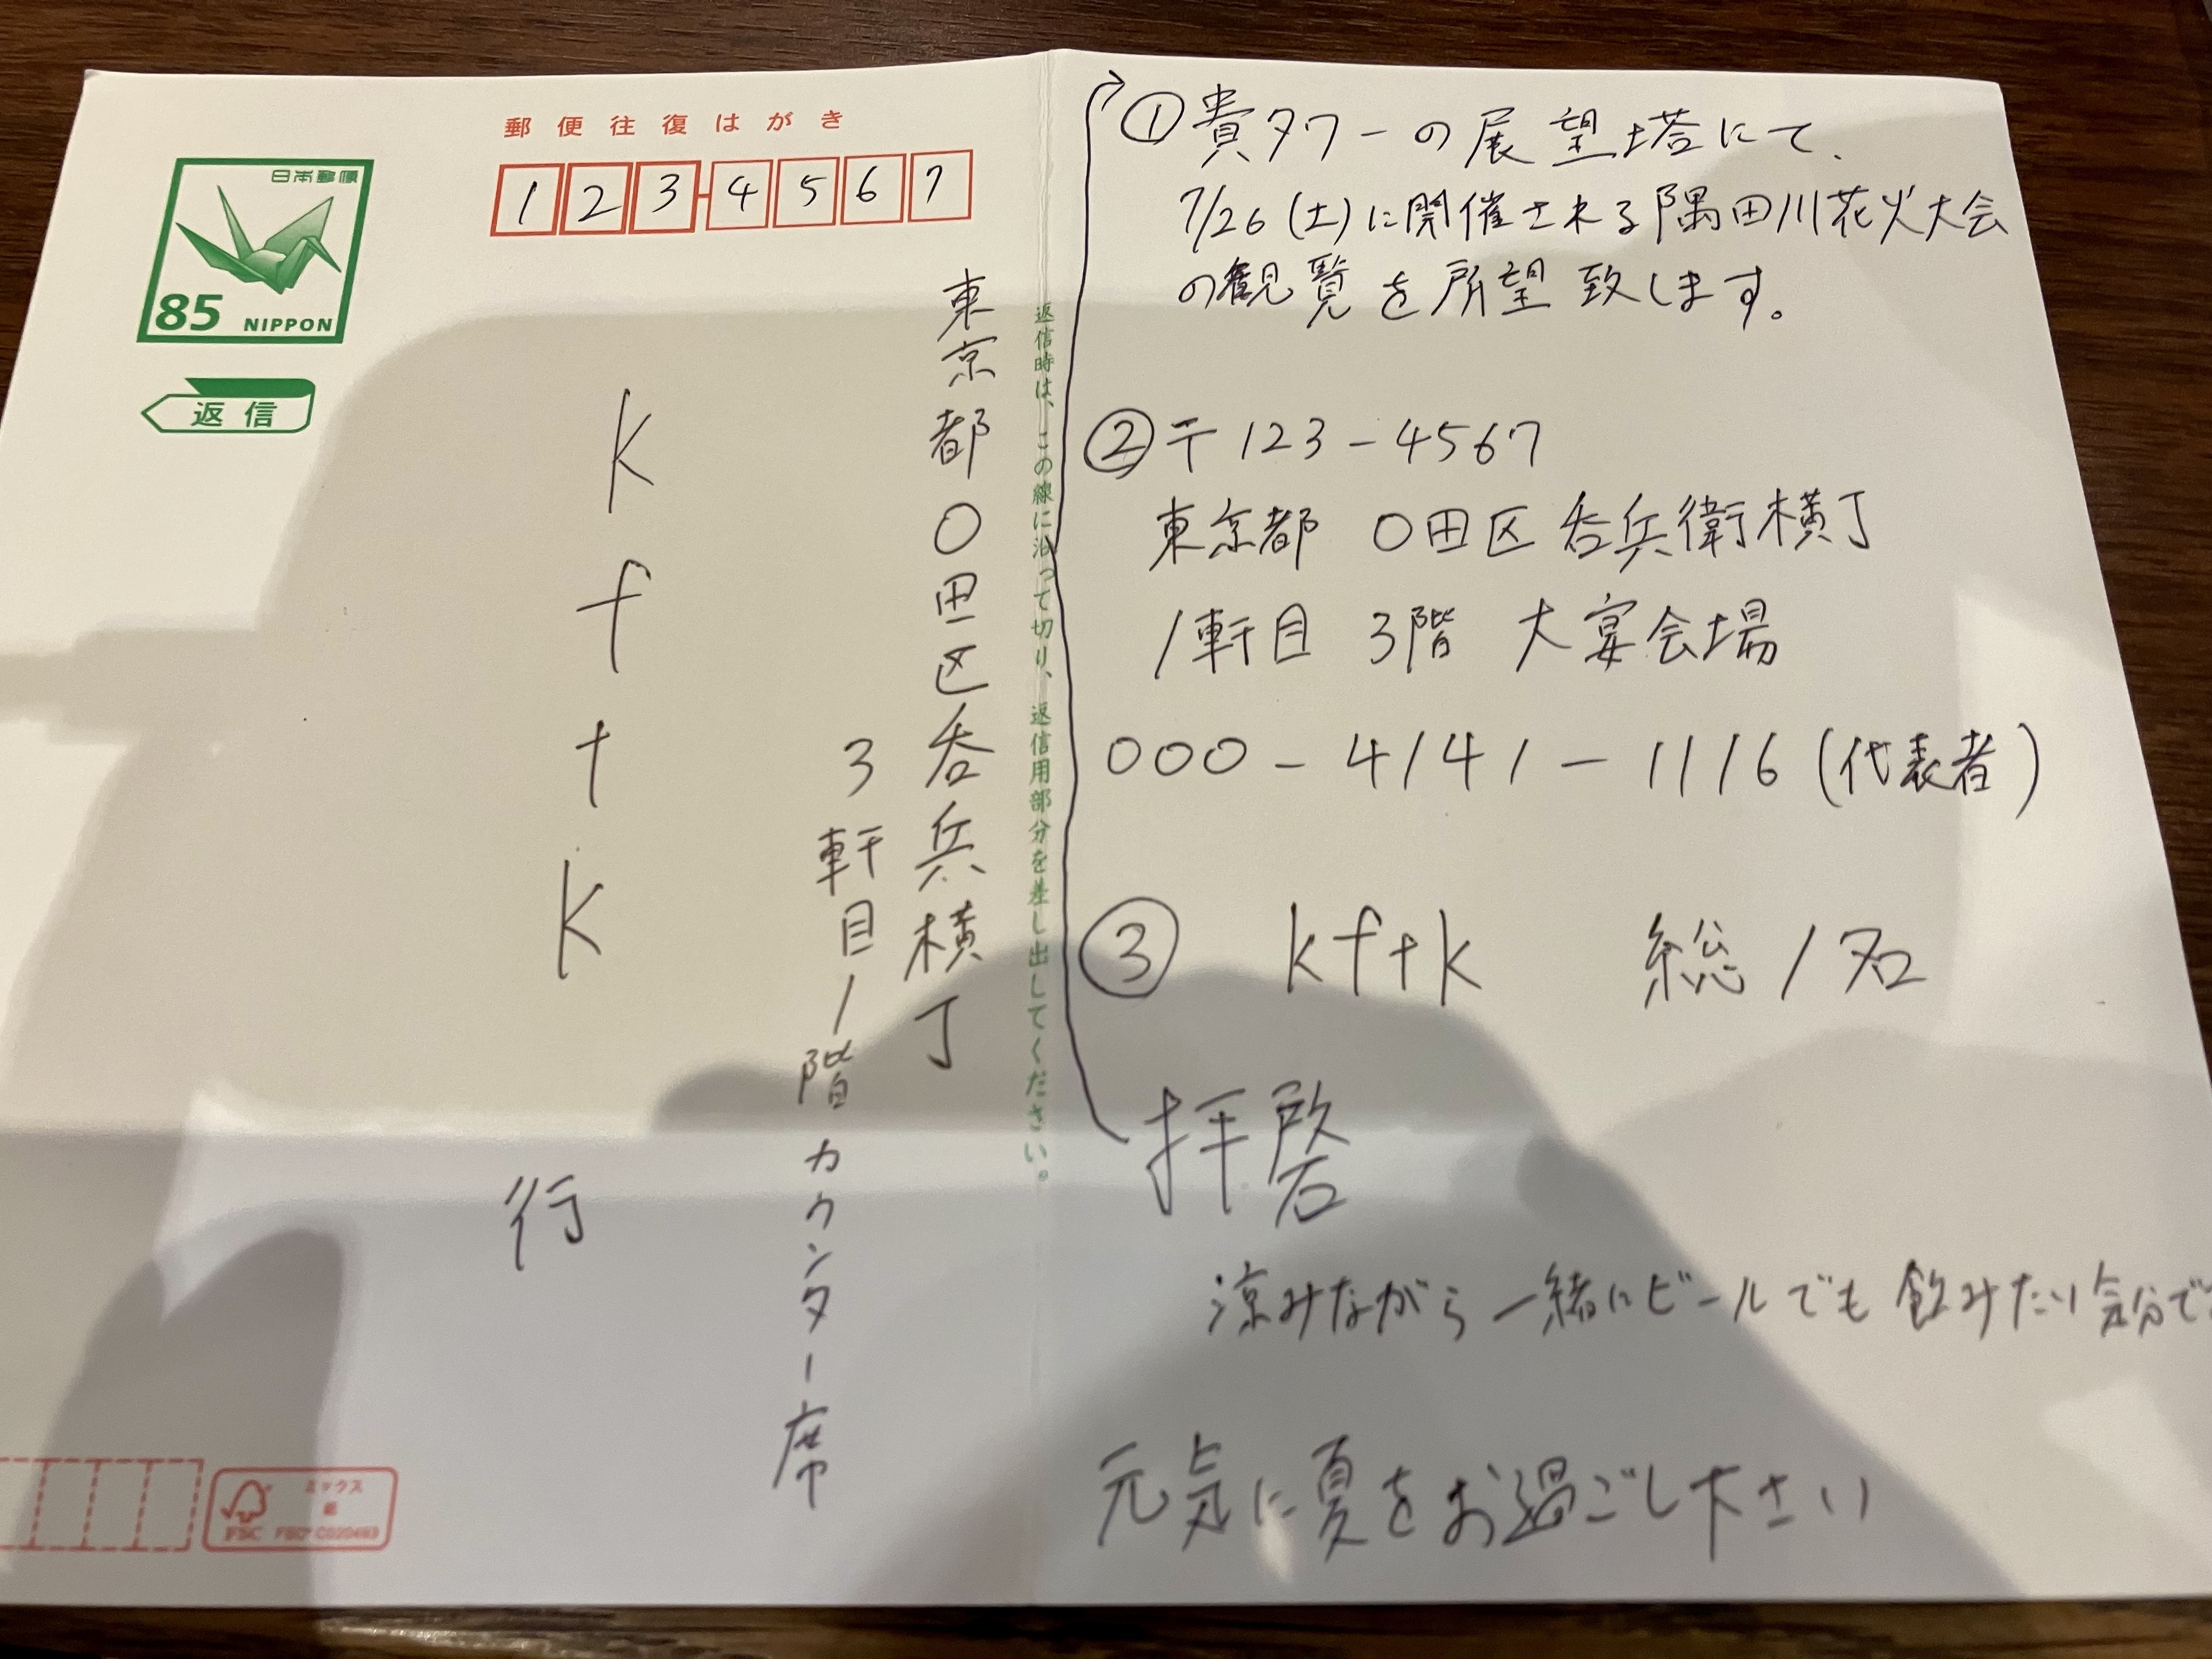 郵便往復はがき
123-4567
日本郵便
85 NIPPON
返信
東京都〇田区呑兵横丁
3軒目1階カウンター席
kftk
行
返信時は、この線に沿って切り、返信用部分を差し出してください。
ミックス
紙
FSC FSC® C020493
①貴タワーの展望塔にて、
7/26(土)に開催される隅田川花火大会
の観覧を所望致します。
②〒123-4567
東京都 〇田区呑兵衛横丁
1軒目 3階 大宴会場
000-4141-1116(代表者)
③ kftk 総1名
拝啓
涼みながら一緒にビールでも飲みたい気分で
元気に夏をお過ごし下さい